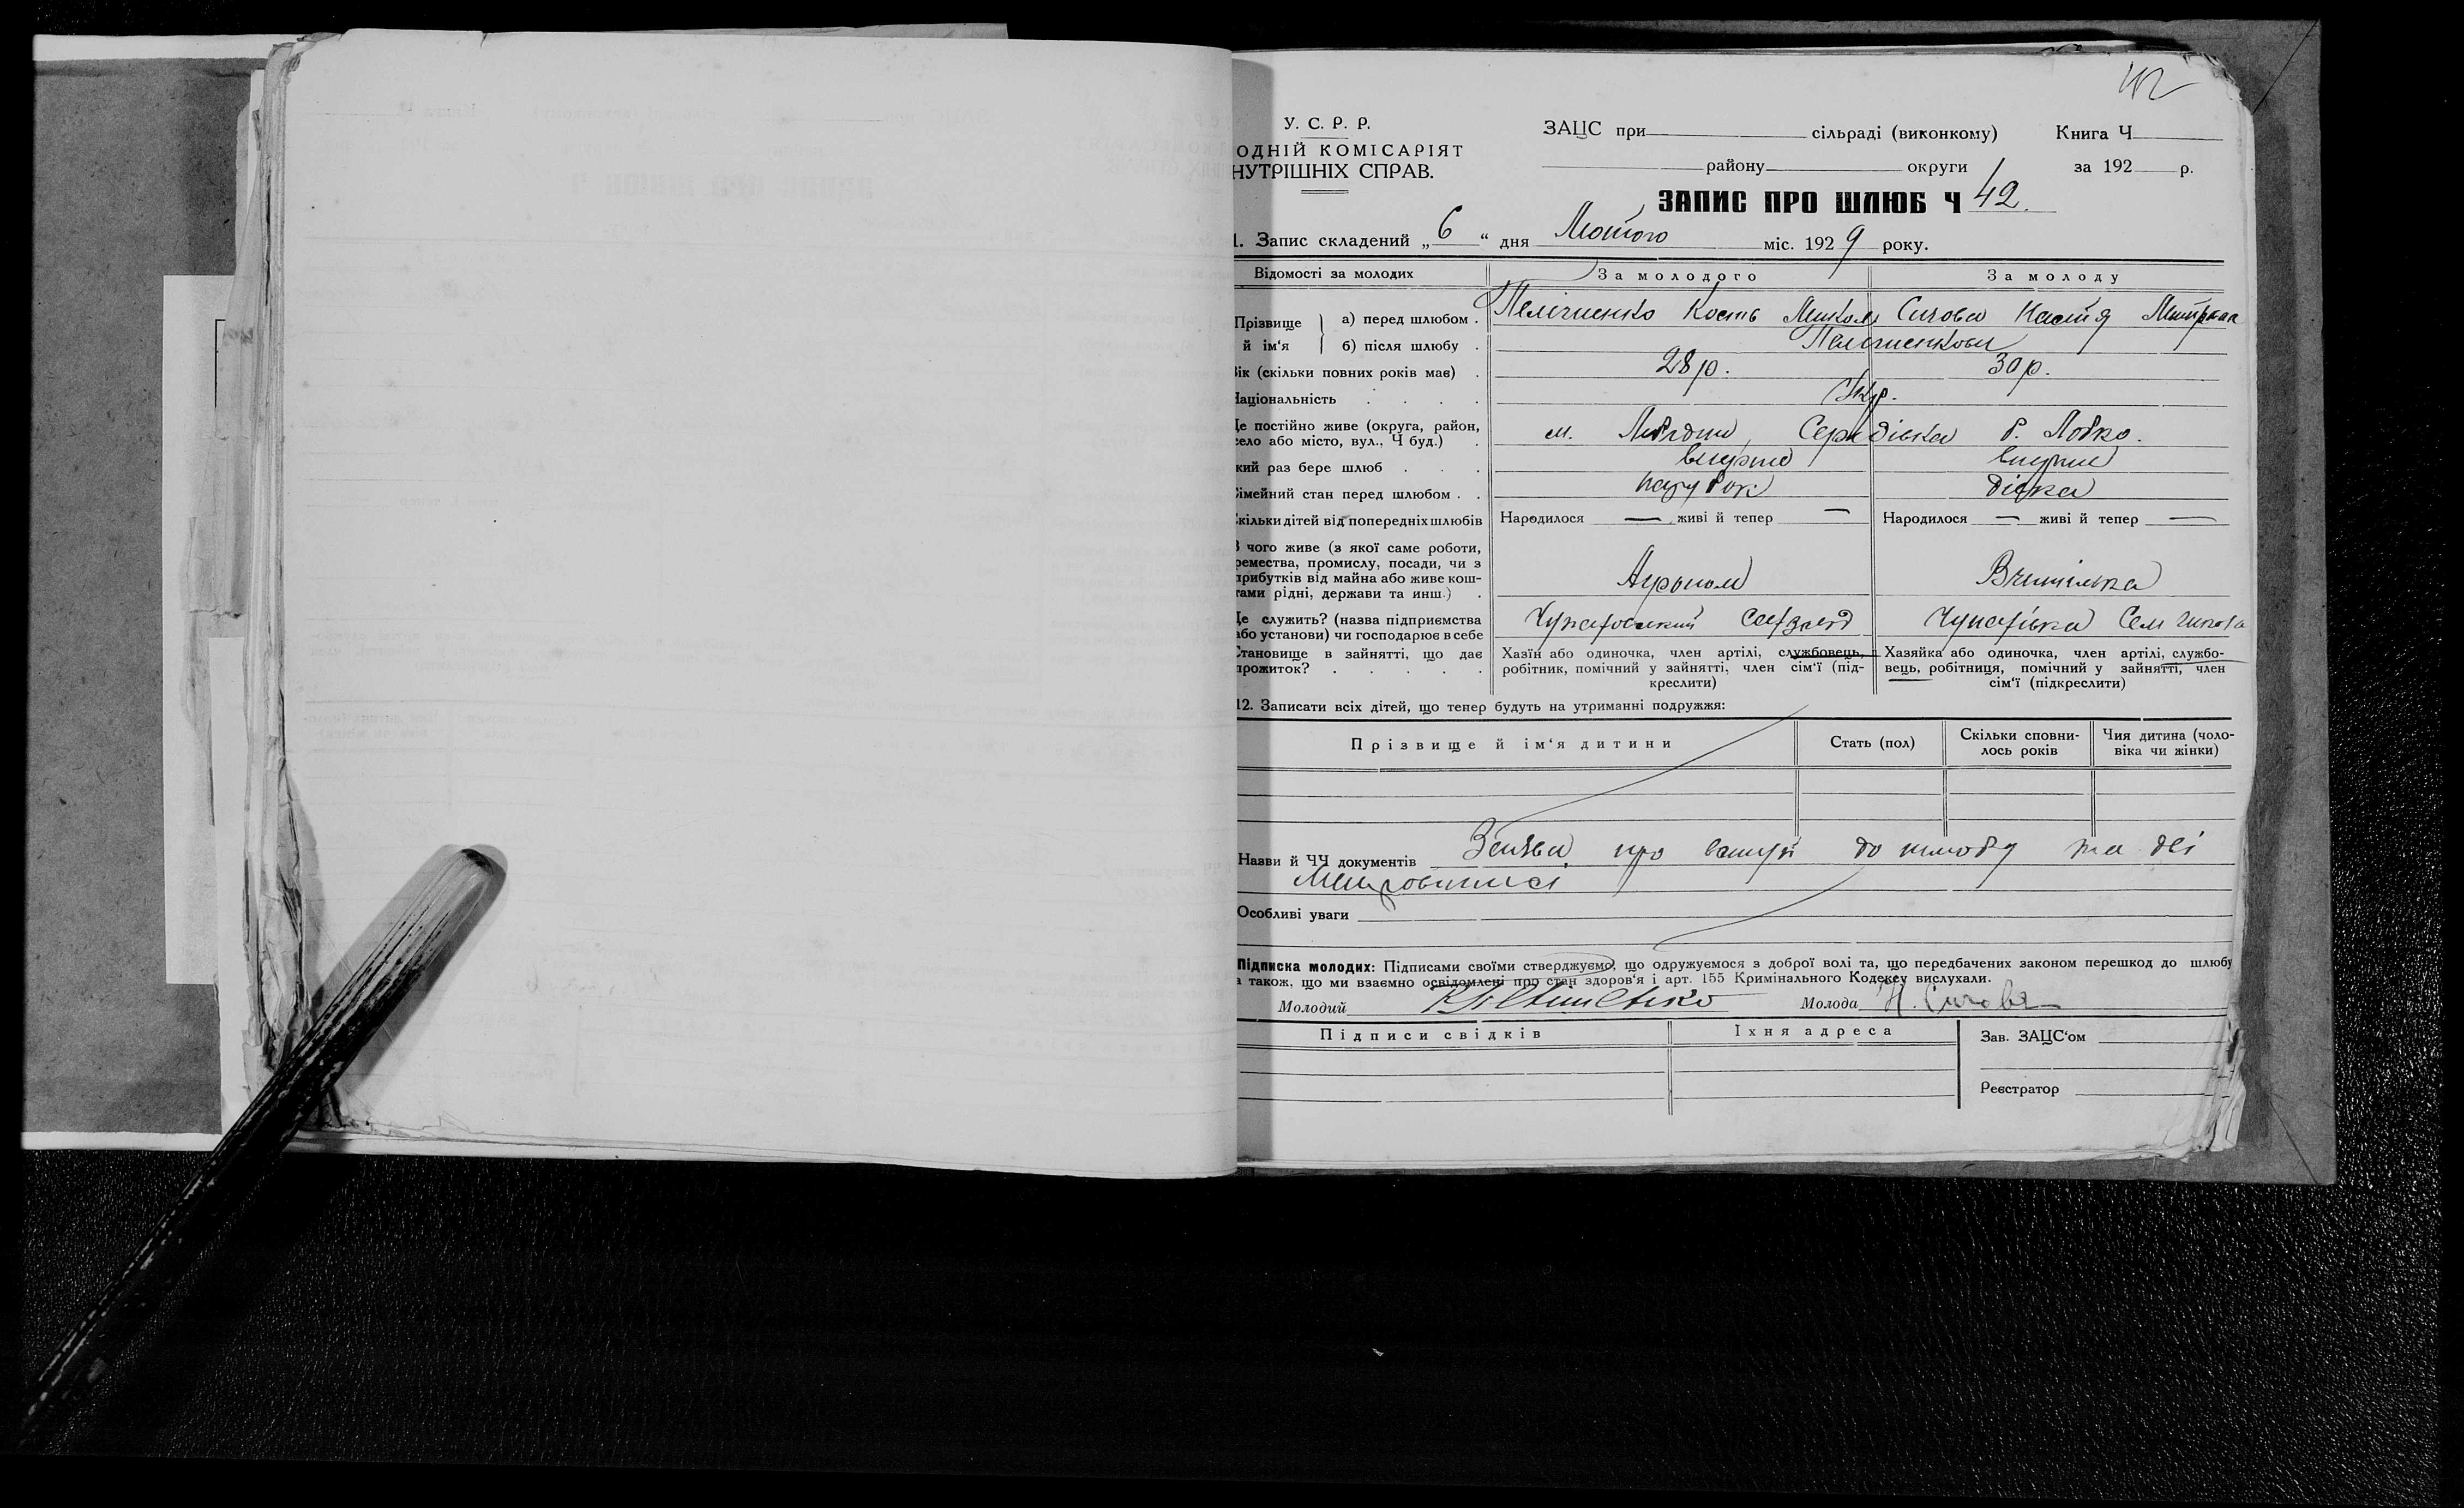 42
У. С. Р. Р.
ОДНІЙ КОМІСАРІЯТ
НУТРІШНІХ СПРАВ.
ЗАЦС при сільраді (виконкому) Книга Ч
району округи за 192 р.
ЗАПИС ПРО ШЛЮБ Ч 42.
1. Запис складений „6“ дня Лютого міс. 1929 року.
Відомості за молодих За молодого За молоду
Прізвище й ім‘я а) перед шлюбом . Кость Микол Сичова Настя Митрівна
б) після шлюбу .
Вік (скільки повних років має) . 28 р. 30 р.
Національність . . . . Укр.
Де постійно живе (округа, район, село або місто, вул., Ч буд.) . м.
кий раз бере шлюб . . . вперше вперше
Сімейний стан перед шлюбом . . парубок дівка
Скільки дітей від попередніх шлюбів Народилося — живі й тепер — Народилося — живі й тепер —
З чого живе (з якої саме роботи,
ремества, промислу, посади, чи з
прибутків від майна або живе кош-
тами рідні, держави та инш.) . Агроном Вчителька
Де служить? (назва підприємства
або установи) чи господарює в себе
Становище в зайнятті, що дає
прожиток? . . . . .
Хазїн або одиночка, член артілі, службовець,
робітник, помічний у зайнятті, член сім‘ї (під-
креслити)
Хазяйка або одиночка, член артілі, службо-
вець, робітниця, помічний у зайнятті, член
сім‘ї (підкреслити)
12. Записати всіх дітей, що тепер будуть на утриманні подружжя:
Прізвище й ім‘я дитини Стать (пол) Скільки сповни-
лось років Чия дитина (чоло-
віка чи жінки)
Назви й ЧЧ документів Заява про вступ до шлюбу та дві
Метровиписі
Особливі уваги
Підписка молодих: Підписами своїми стверджуємо, що одружуємося з доброї волі та, що передбачених законом перешкод до шлюбу
а також, що ми взаємно освідомлені про стан здоров‘я і арт. 155 Кримінального Кодексу вислухали.
Молодий Молода Н. Сичова
Підписи свідків Їхня адреса Зав. ЗАЦС‘ом
Реєстратор